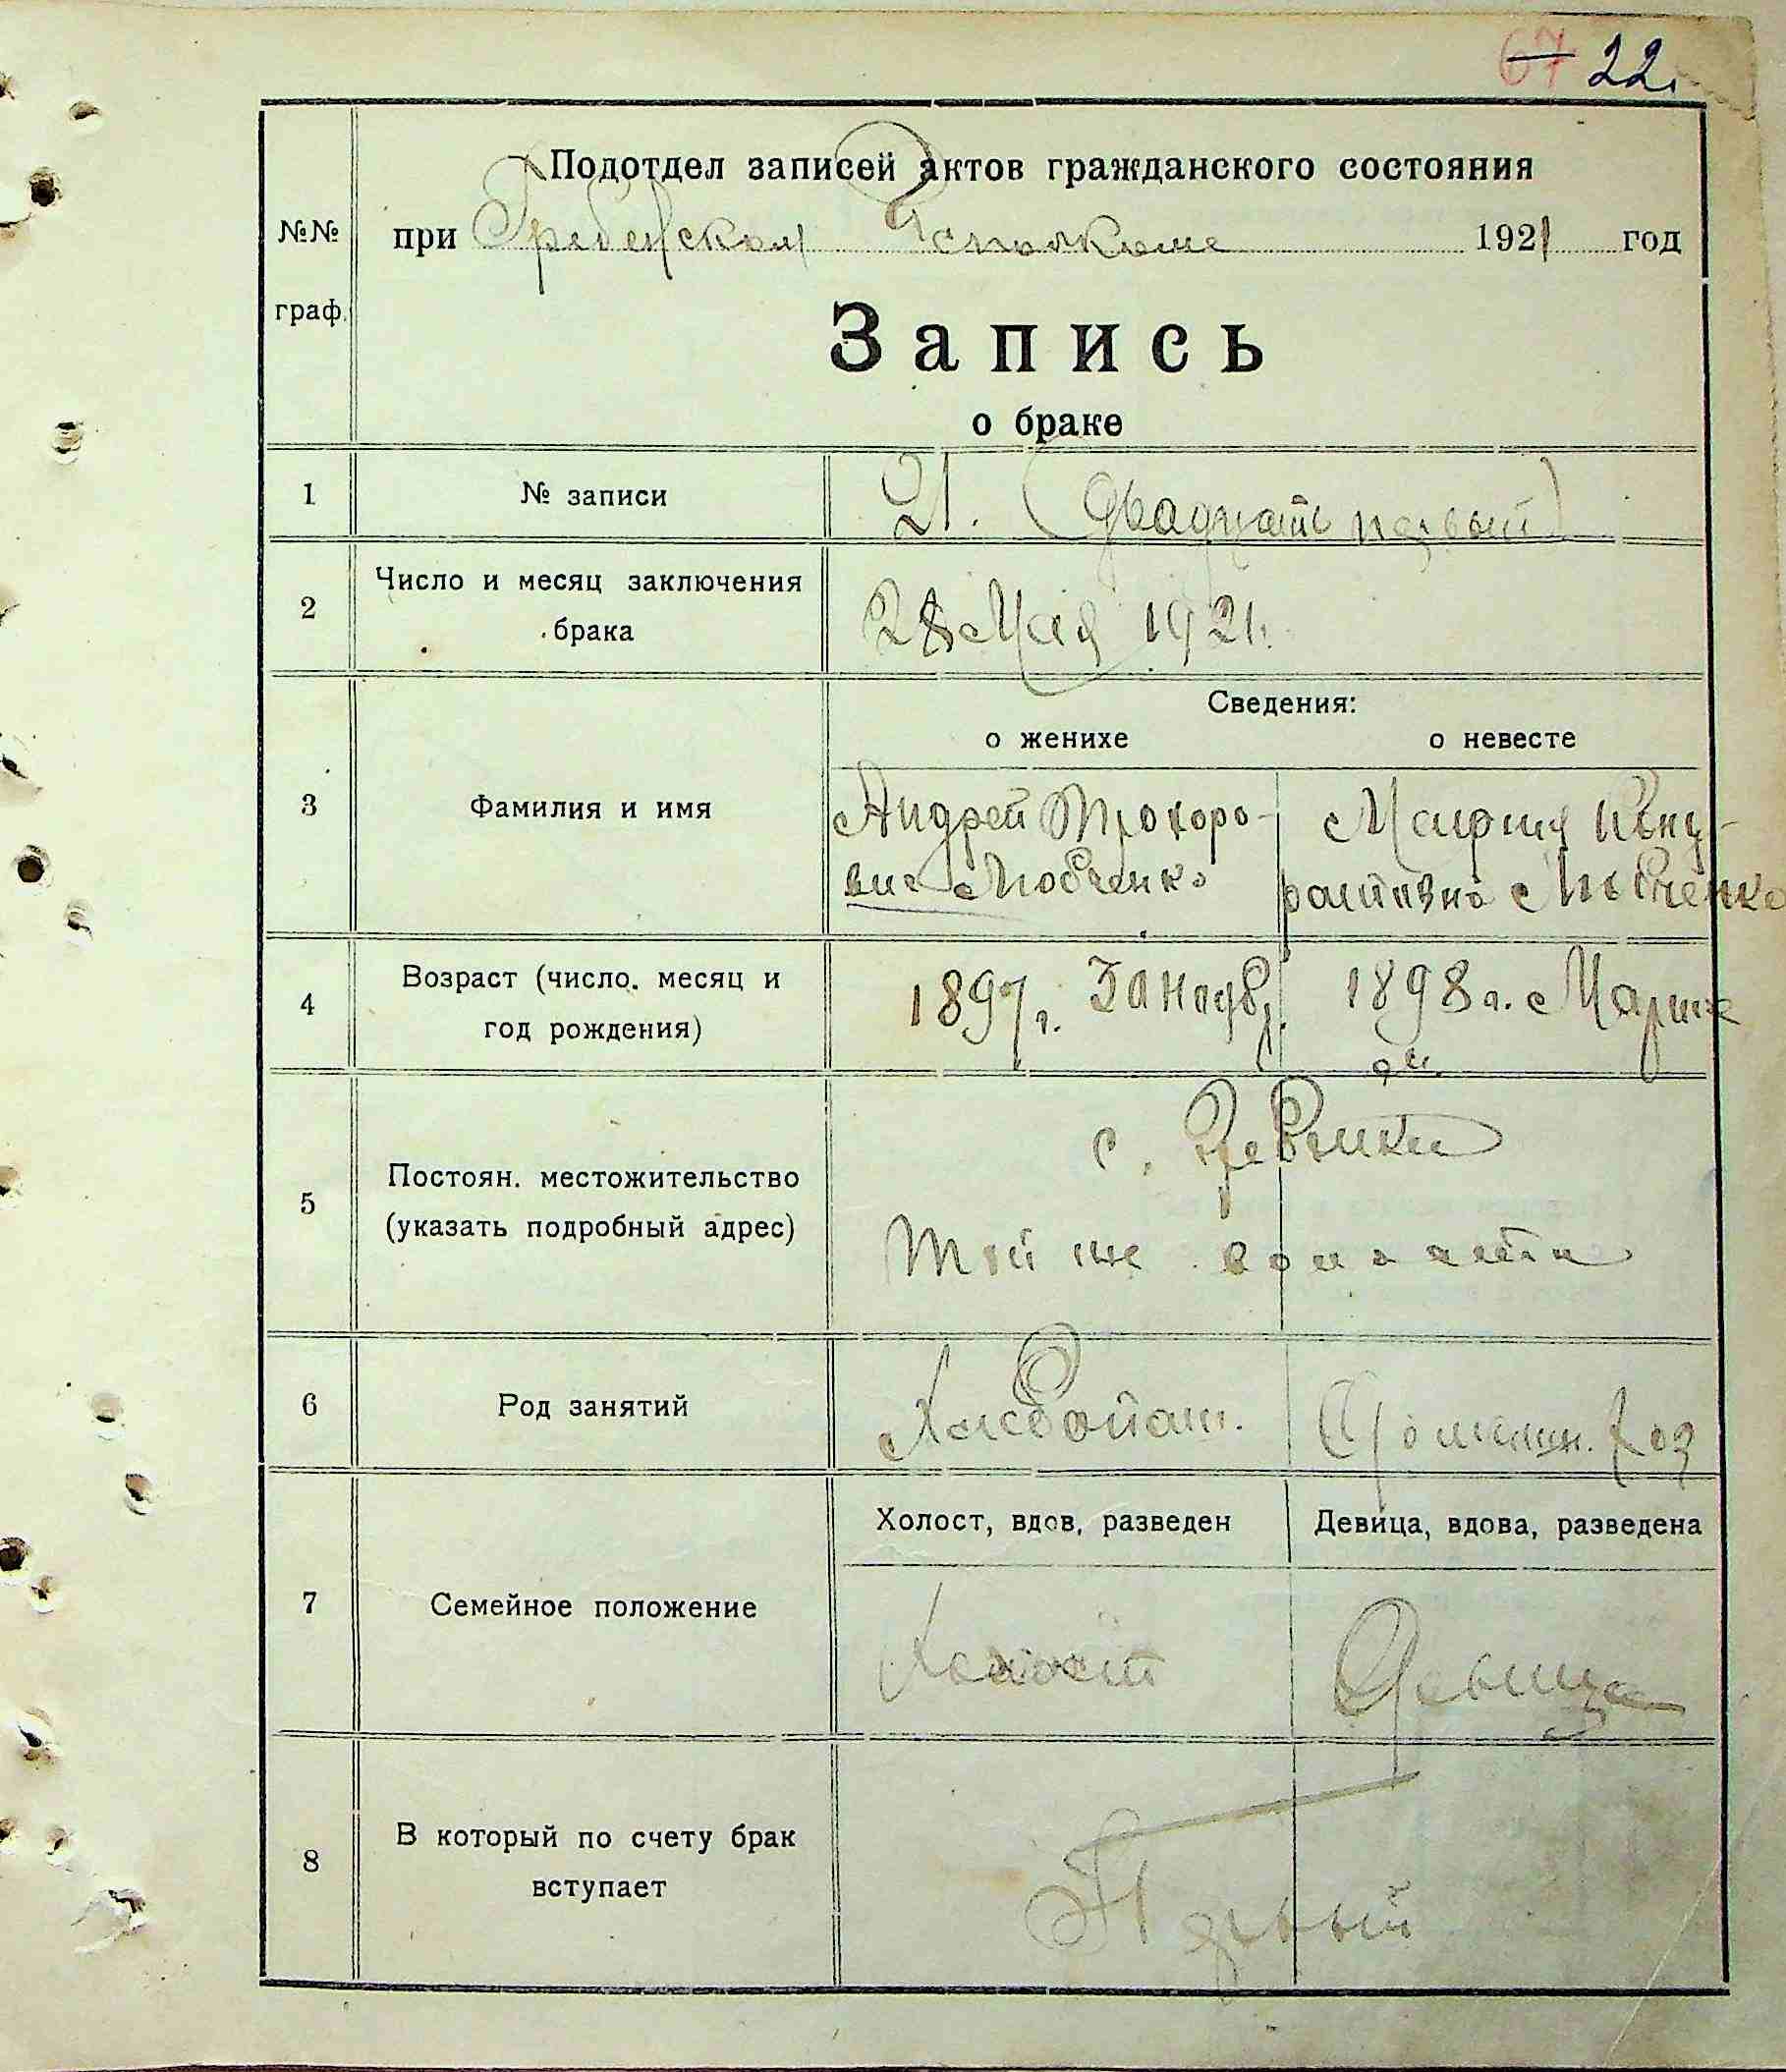 67 22
Подотдел записей актов гражданского состояния
№№
при Гребенском Исполкоме 1921 год
граф.
Запись
о браке
1 № записи 21. (двадцать первый)
2 Число и месяц заключения
брака
28 Мая 1921.
Сведения:
о женихе о невесте
3 Фамилия и имя
Андрей Прохоро- Мария
вич Любченко Любченко
4 Возраст (число, месяц и
год рождения)
1897 г. 1898 г. Марта
5 Постоян. местожительство
(указать подробный адрес)
с.
той же волости
6 Род занятий
Хлебопаш. Домашн. хоз
7 Семейное положение
Холост, вдов, разведен Девица, вдова, разведена
Холост Девица
8 В который по счету брак
вступает
Первый